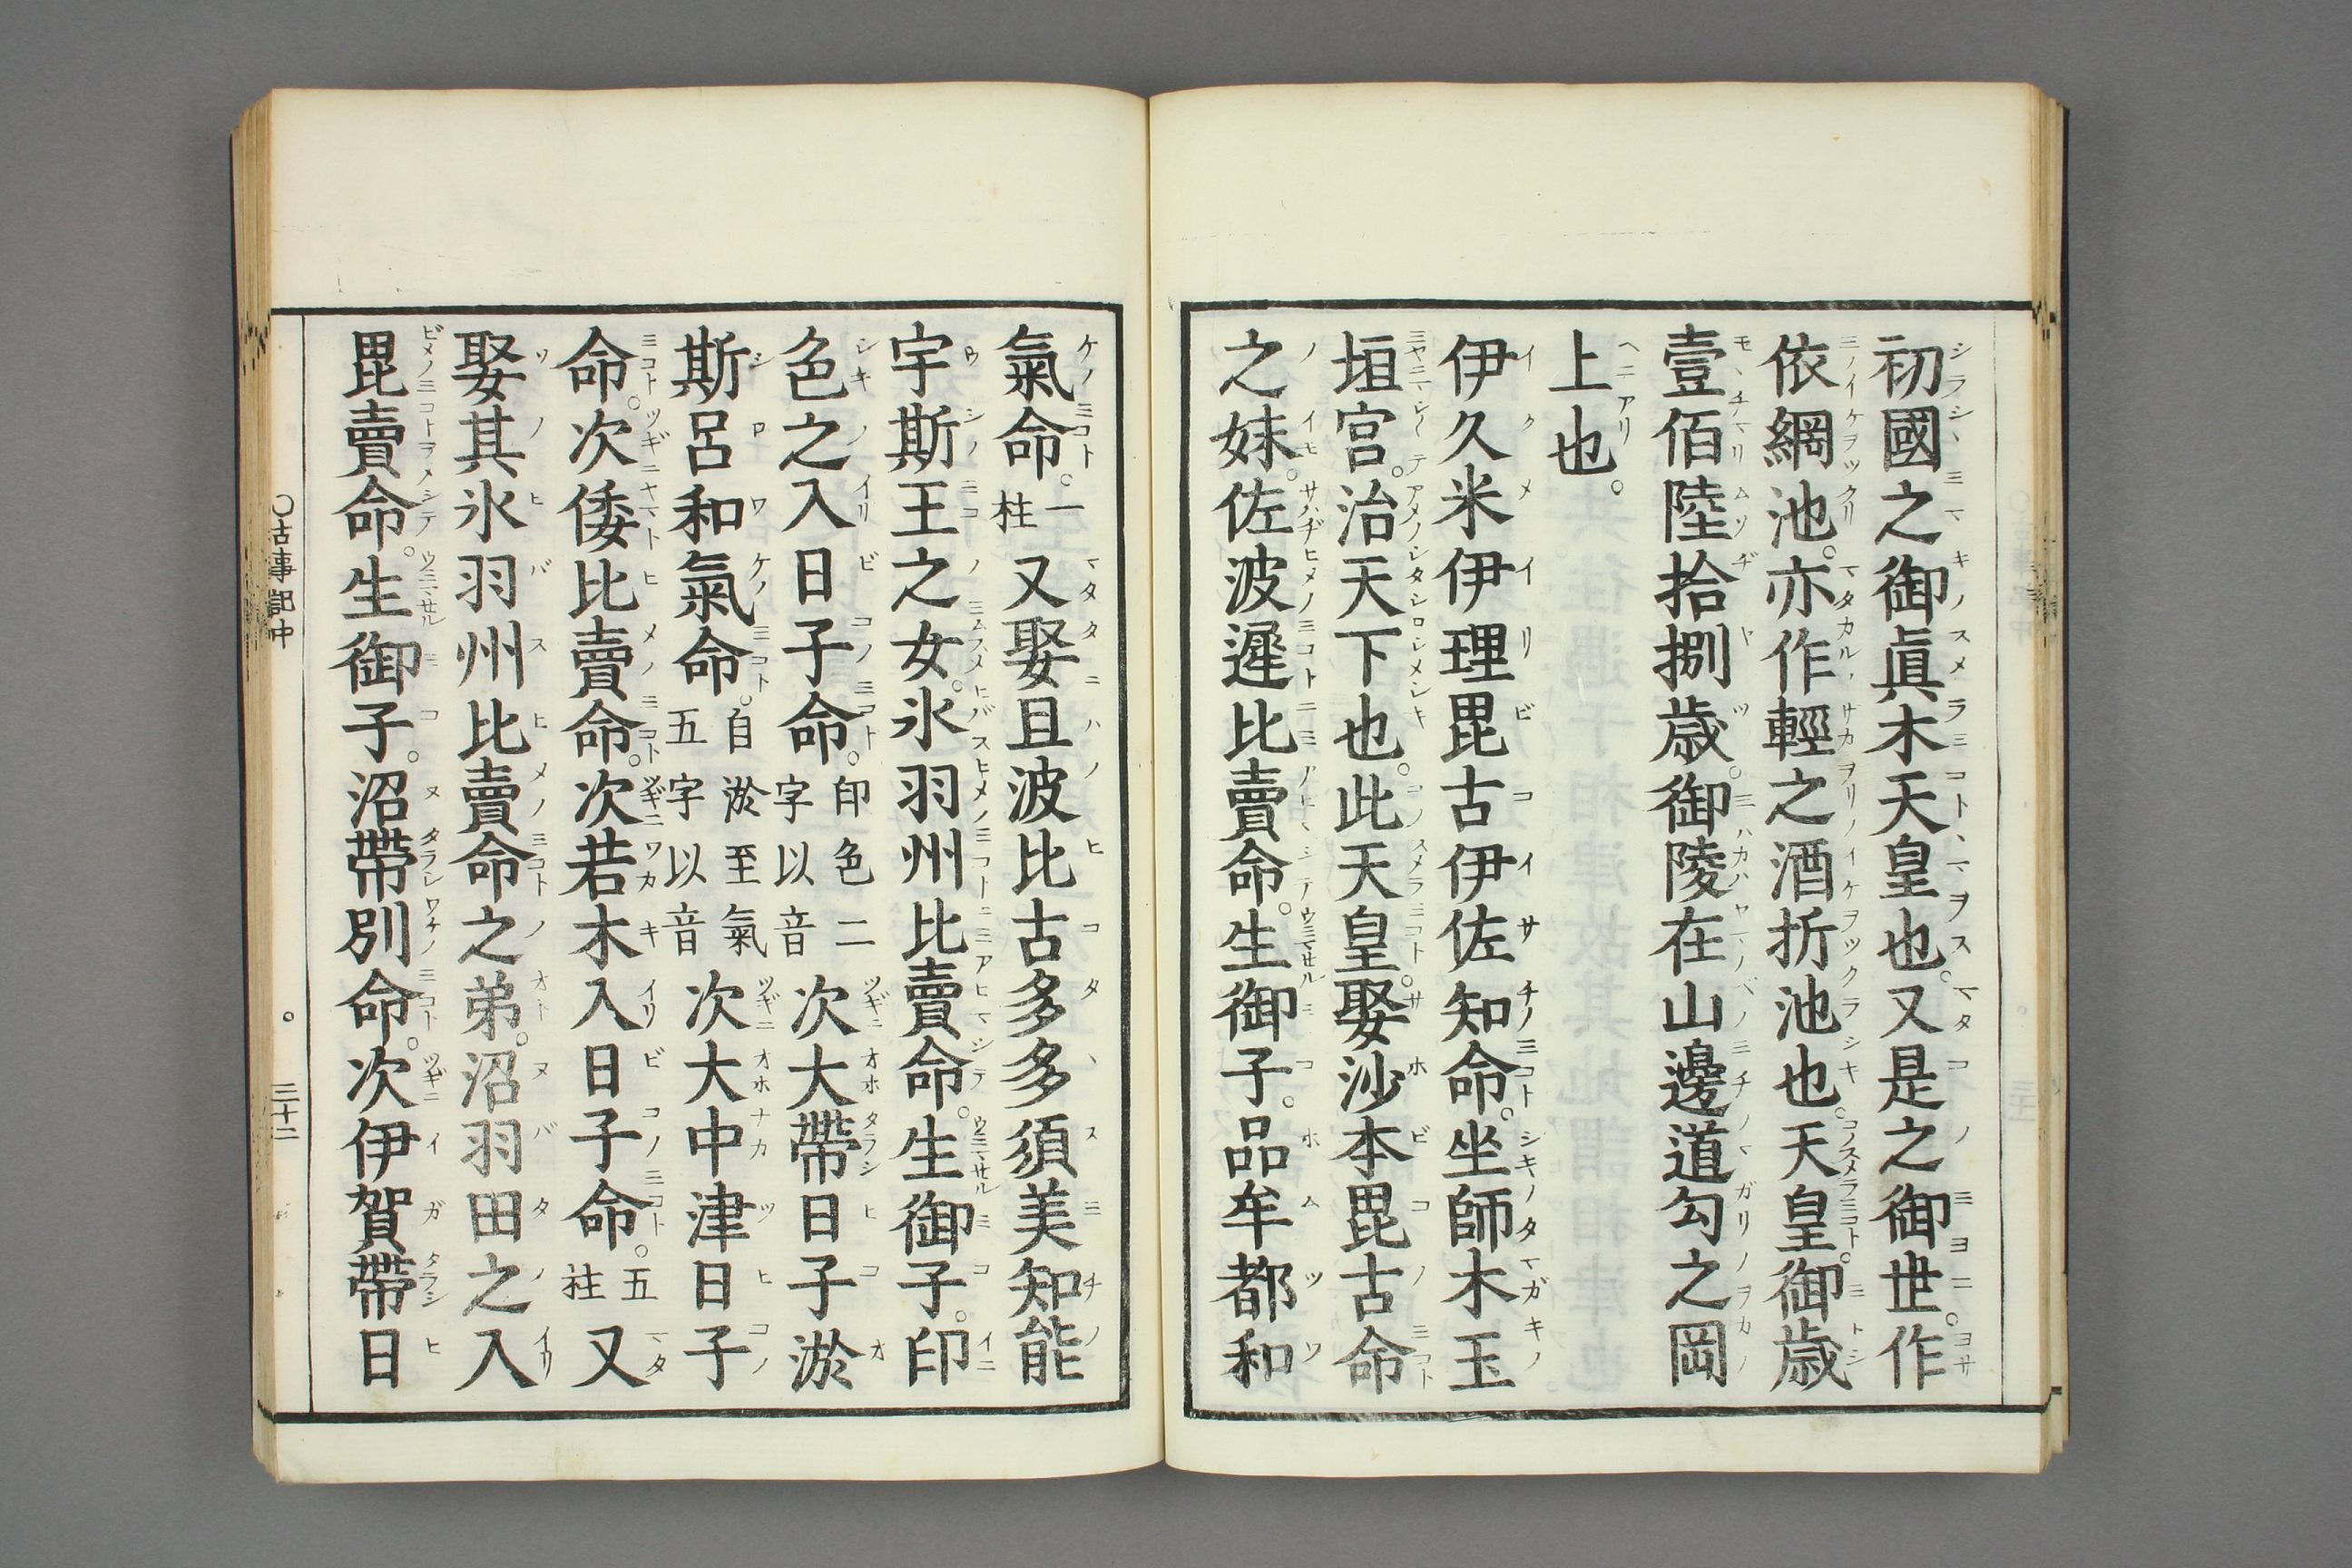 初國之御眞木天皇也。又是之御世。作
依網池。亦作輕之酒折池也。天皇御歳
壹佰陸拾捌歳。御陵在山邊道勾之岡
上也。
伊久米伊理毘古伊佐知命。坐師木玉
垣宮。治天下也。此天皇。娶沙本毘古命
之妹。佐波遲比賣命。生御子。品牟都和
氣命。一柱又娶旦波比古多多須美知能
宇斯王之女。氷羽州比賣命。生御子。印
色之入日子命。印色二字以音次大帶日子淤
斯呂和氣命。自淤至氣五字以音次大中津日子
命。次倭比賣命。次若木入日子命。五柱又
娶其氷羽州比賣命之弟。沼羽田之入
毘賣命。生御子。沼帶別命。次伊賀帶日
○古事記中
三十二